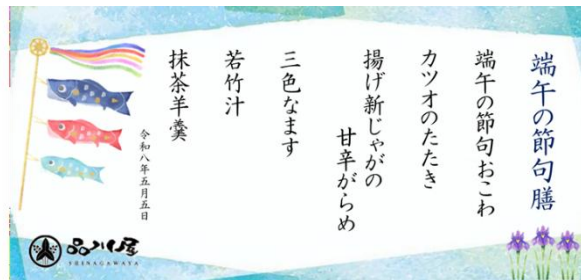 端午の節句膳
端午の節句おこわ
カツオのたたき
揚げ新じゃがの
甘辛がらめ
三色なます
若竹汁
抹茶羊羹
令和八年五月五日
品川屋
SHINAGAWAYA